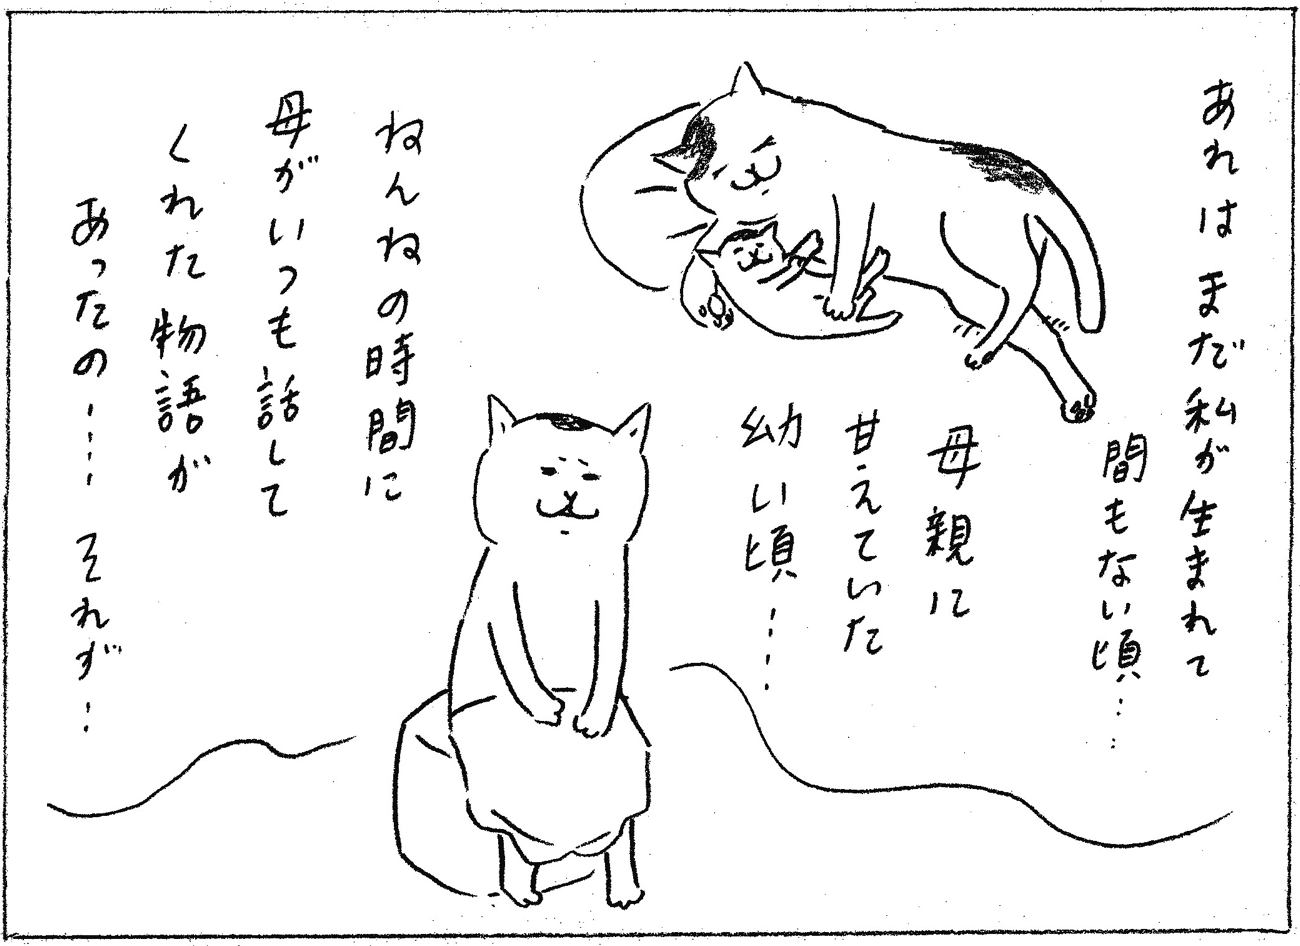 あれはまだ私が生まれて
間もない頃……
母親に
甘えていた
幼い頃……
ねんねの時間に
母がいつも話して
くれた物語が
あったの…… それが…